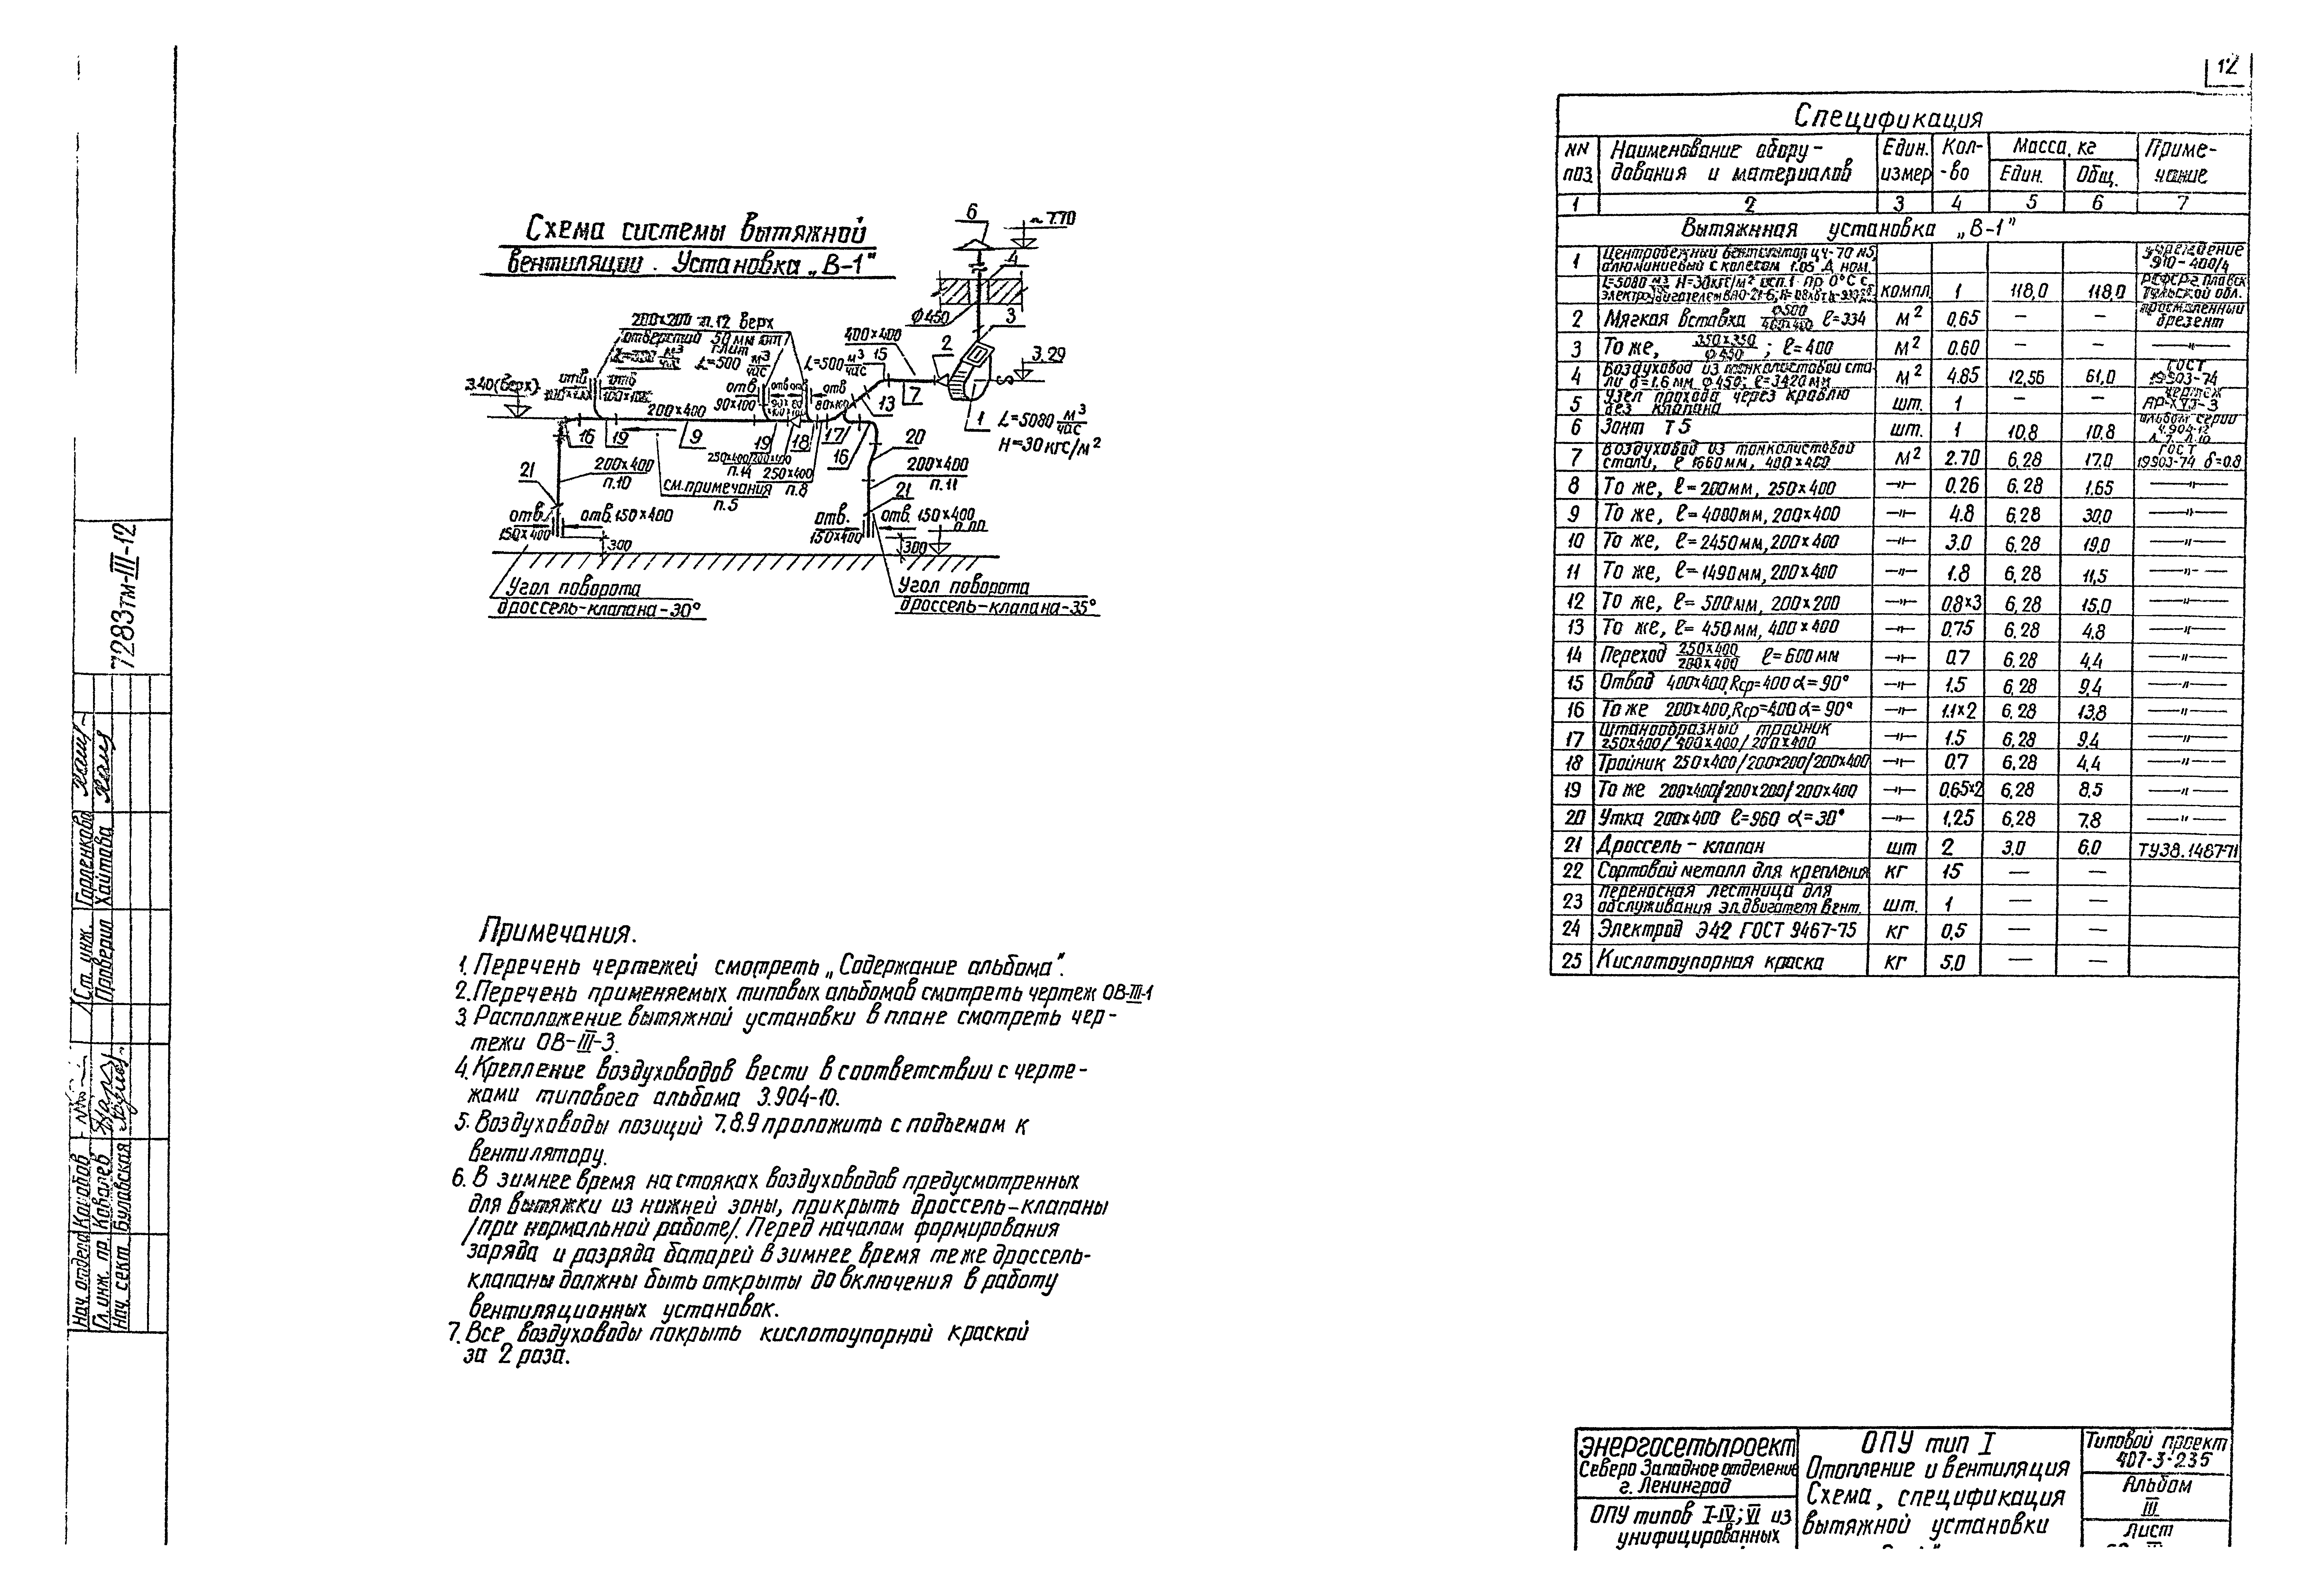 12
Схема системы вытяжной
вентиляции. Установка „В-1"
6
~7.70
4
ф450
3
200х200 п.12 верх
отверстий 50 мм от
плит
400х400
2
3.29
L=500 м³/час
L=500 м³/час
15
3.40(верх)
отв
отв
отв
отв
отв
отв
90х100
80х100
200х400
13
7
1
L=5080 м³/час
H=30 кгс/м²
16
19
9
19
18
17
16
20
250х400/200х400
п.14
250х400
п.8
21
200х400
п.10
см.примечания
п.5
200х400
п.11
21
отв.
150х400
отв.150х400
отв.
150х400
отв.150х400
0.00
300
300
Угол поворота
дроссель-клапана-30°
Угол поворота
дроссель-клапана-35°
Примечания.
1. Перечень чертежей смотреть „Содержание альбома".
2. Перечень применяемых типовых альбомов смотреть чертеж ОВ-III-1
3. Расположение вытяжной установки в плане смотреть чер-
тежи ОВ-III-3.
4. Крепление воздуховодов вести в соответствии с черте-
жами типового альбома 3.904-10.
5. Воздуховоды позиций 7.8.9 проложить с подъемом к
вентилятору.
6. В зимнее время на стояках воздуховодов предусмотренных
для вытяжки из нижней зоны, прикрыть дроссель-клапаны
/при нормальной работе/. Перед началом формирования
заряда и разряда батарей в зимнее время те же дроссель-
клапаны должны быть открыты до включения в работу
вентиляционных установок.
7. Все воздуховоды покрыть кислотоупорной краской
за 2 раза.
Спецификация
NN поз. Наименование обору- дования и материалов Един. измер Кол- -во Масса, кг Един. Общ. Приме- чание
1 2 3 4 5 6 7
Вытяжнная установка „В-1"
1 Центробежный вентилятор Ц4-70 N5 учреждение
алюминиевый с колесом 1.05 Д ном. УЮ-400/4
L=5080 м³/час H=30кгс/м² исп.1 Пр 0°С с РСФСР г. Плавск
компл. 1 118,0 118,0 Тульской обл.
2 Мягкая вставка ф500/400х400 ℓ=334 м² 0.65 — — промасленный брезент
3 То же, 350х350/ф450; ℓ=400 м² 0.60 — — —"—
4 Воздуховод из тонколистовой ста- ГОСТ
ли δ=1.6 мм ф450; ℓ=3420 мм м² 4.85 12,56 61,0 19903-74
5 Узел прохода через кровлю чертеж
без клапана шт. 1 — — АР-XVI-3
6 Зонт Т5 шт. 1 10,8 10,8 альбом серии 4.904-12
7 Воздуховод из тонколистовой ГОСТ
стали, ℓ 1660мм, 400х400 м² 2.70 6,28 17,0 19903-74 δ=0.8
8 То же, ℓ=200мм, 250х400 —"— 0.26 6,28 1.65 —"—
9 То же, ℓ=4000мм, 200х400 —"— 4.8 6,28 30,0 —"—
10 То же, ℓ=2450мм, 200х400 —"— 3.0 6,28 19,0 —"—
11 То же, ℓ=1490мм, 200х400 —"— 1.8 6,28 11,5 —"—
12 То же, ℓ= 500мм, 200х200 —"— 0,8х3 6,28 15,0 —"—
13 То же, ℓ= 450мм, 400х400 —"— 0.75 6,28 4.8 —"—
14 Переход 250х400/200х400 ℓ=600мм —"— 0.7 6.28 4,4 —"—
15 Отвод 400х400,Rср=400 α=90° —"— 1.5 6,28 9,4 —"—
16 То же 200х400,Rср=400 α=90° —"— 1.1х2 6,28 13,8 —"—
17 Штанообразный тройник
250х400/400х400/200х400 —"— 1.5 6,28 9,4 —"—
18 Тройник 250х400/200х200/200х400 —"— 0.7 6,28 4,4 —"—
19 То же 200х400/200х200/200х400 —"— 0,65х2 6,28 8,5 —"—
20 Утка 200х400 ℓ=960 α=30° —"— 1,25 6,28 7,8 —"—
21 Дроссель-клапан шт 2 3,0 6,0 ТУ38.1487-71
22 Сортовой металл для крепления кг 15 — —
23 переносная лестница для
обслуживания эл.двигателя вент. шт. 1 — —
24 Электрод Э42 ГОСТ 9467-75 кг 0,5 — —
25 Кислотоупорная краска кг 5,0 — —
ЭНЕРГОСЕТЬПРОЕКТ
Северо Западное отделение
г. Ленинград
ОПУ типов I-IV; VI из
унифицированных
ОПУ тип I
Отопление и вентиляция
Схема, спецификация
вытяжной установки
Типовой проект
407-3-235
Альбом
III
Лист
7283тм-III-12
Ст. инж. Гордеенкова
Проверил Хайтова
Нач. отдела
Гл. инж. пр. Ковалев
Нач. сект. Булавская